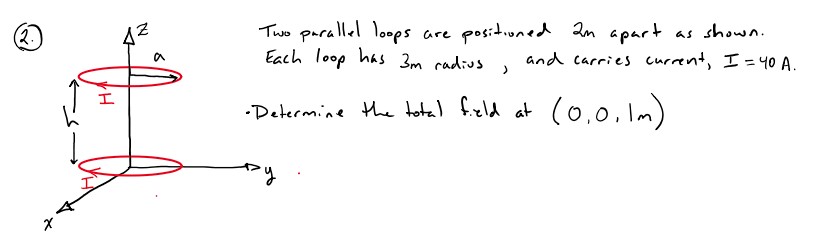 2.
Two parallel loops are positioned 2m apart as shown.
Each loop has 3m radius, and carries current, I = 40 A.
• Determine the total field at (0,0,1m)
z
a
I
h
I
y
x